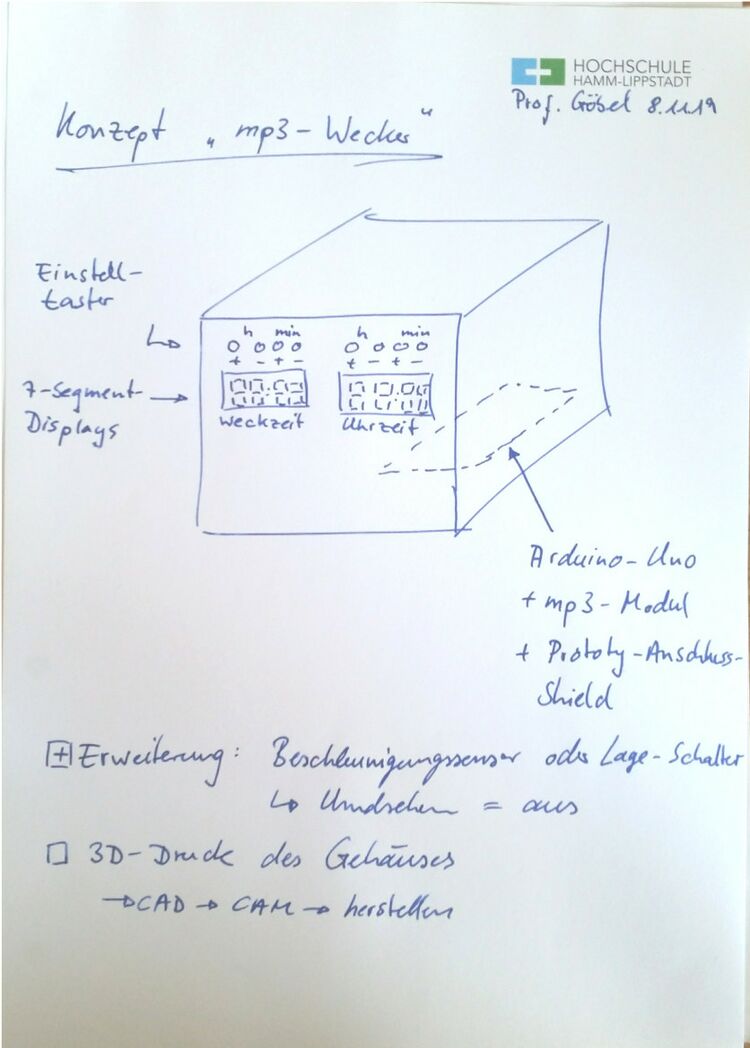 HOCHSCHULE
HAMM-LIPPSTADT
Prof. Göbel 8.11.19
Konzept „mp3-Wecker“
Einstell-
taster
h min h min
+ - + - + - + -
7-Segment-
Displays
Weckzeit Uhrzeit
Arduino-Uno
+ mp3-Modul
+ Prototy-Anschluss-
Shield
+ Erweiterung: Beschleunigungssensor oder Lage-Schalter
↳ Umdrehen = aus
☐ 3D-Druck des Gehäuses
→ CAD → CAM → herstellen